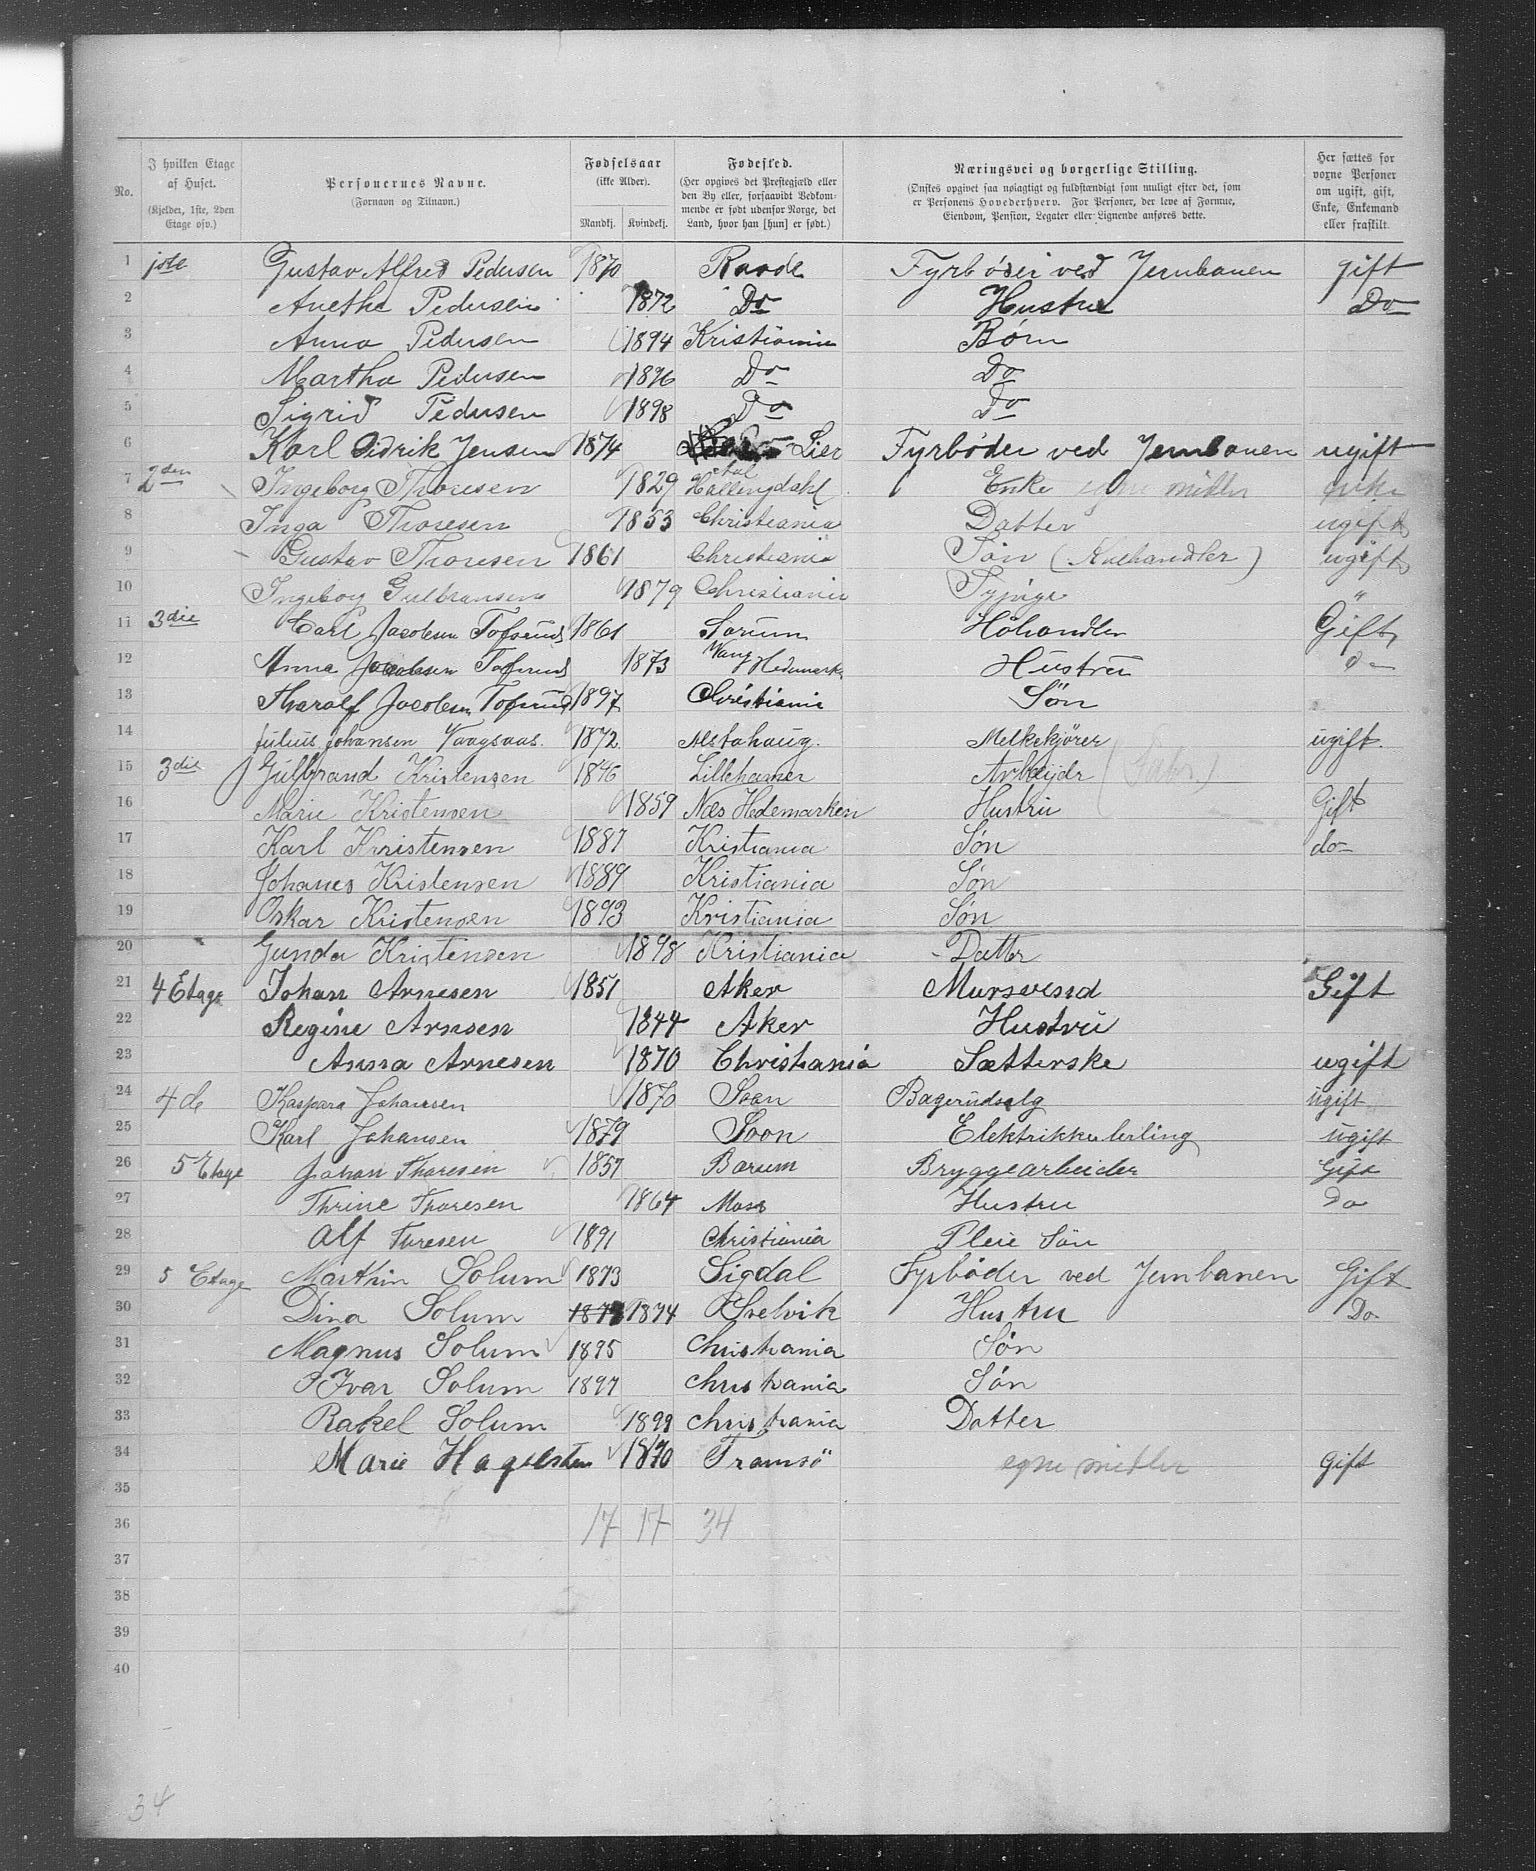 No. | I hvilken Etage af Huset. (Kjelder, 1ste, 2den Etage osv.) | Personernes Navne. (Fornavn og Tilnavn.) | Fødselsaar (ikke Alder). Mandkj. Kvindekj. | Fødested. (Her opgives det Prestegjæld eller den By eller, forsaavidt Vedkommende er født udenfor Norge, det Land, hvor han [hun] er født.) | Næringsvei og borgerlige Stilling. (Ønskes opgivet saa nøiagtigt og fuldstændigt som muligt efter det, som er Personens Hovederhverv. For Personer, der leve af Formue, Eiendom, Pension, Legater eller Lignende anføres dette. | Her sættes for voxne Personer om ugift, gift, Enke, Enkemand eller fraskilt.
1 Gustav Alfred Pedersen 1870 Raade Fyrbøder ved Jernbanen gift
2 Anetha Pedersen 1872 Do Hustru Do
3 Anna Pedersen 1894 Kristiania Børn
4 Martha Pedersen 1896 Do Do
5 Sigrid Pedersen 1898 Do Do
6 Karl Didrik Jensen 1874 Lier Fyrbøder ved Jernbanen ugift
7 2den Ingeborg Thoresen 1829 Hallingdahl Enke egne midler enke
8 Inga Thoresen 1853 Christiania Datter ugift
9 Gustav Thoresen 1861 Christiania Søn (Kulhandler) ugift
10 Ingeborg Gulbransen 1879 Christiania "
11 3die Carl Jacobsen Tofsrud 1861 Sørum Høhandler Gift
12 Anna Jacobsen Tofsrud 1873 Vang Hedemark do
13 Tharalf Jacobsen Tofsrud 1897 Christiania Søn
14 Julius Johansen Vaagsaas. 1872 Alstahaug. Melkekjører ugift.
15 3die Gulbrand Kristensen 1846 Lillehamer Arbeijdr (Fabr.)
16 Marie Kristensen 1859 Næs Hedemarken Hustru Gift
17 Karl Kristensen 1887 Kristiania Søn do
18 Johanes Kristensen 1889 Kristiania Søn
19 Oskar Kristensen 1893 Kristiania Søn
20 Gunda Kristensen 1898 Kristiania Datter
21 4 Etage Johan Arnesen 1851 Aker Mursvend Gift
22 Regine Arnsen 1844 Aker Hustru
23 Anna Arnesen 1870 Christiania Sætterske ugift
24 4de Kaspara Johansen 1870 Soon Bagerudsalg ugift
25 Karl Johansen 1879 Soon Elektrikkerlerling ugift
26 5 Etage Johan Thoresen 1857 Bærum Bryggearbeider Gift
27 Thrine Thoresen 1864 Moss Hustru Do
28 Alf Turesen 1891 Christiania Pleie Søn
29 5 Etage Marthin Solum 1873 Sigdal Fyrbøder ved Jernbanen Gift
30 Dina Solum 1873 1874 Svelvik Hustru Do
31 Magnus Solum 1895 Christiania Søn
32 Ivar Solum 1897 Christiania Søn
33 Rakel Solum 1899 Christiania Datter
34 Marie Hagelsten 1870 Tromsö egne midler gift
35
36 17 17 34
37
38
39
40
34